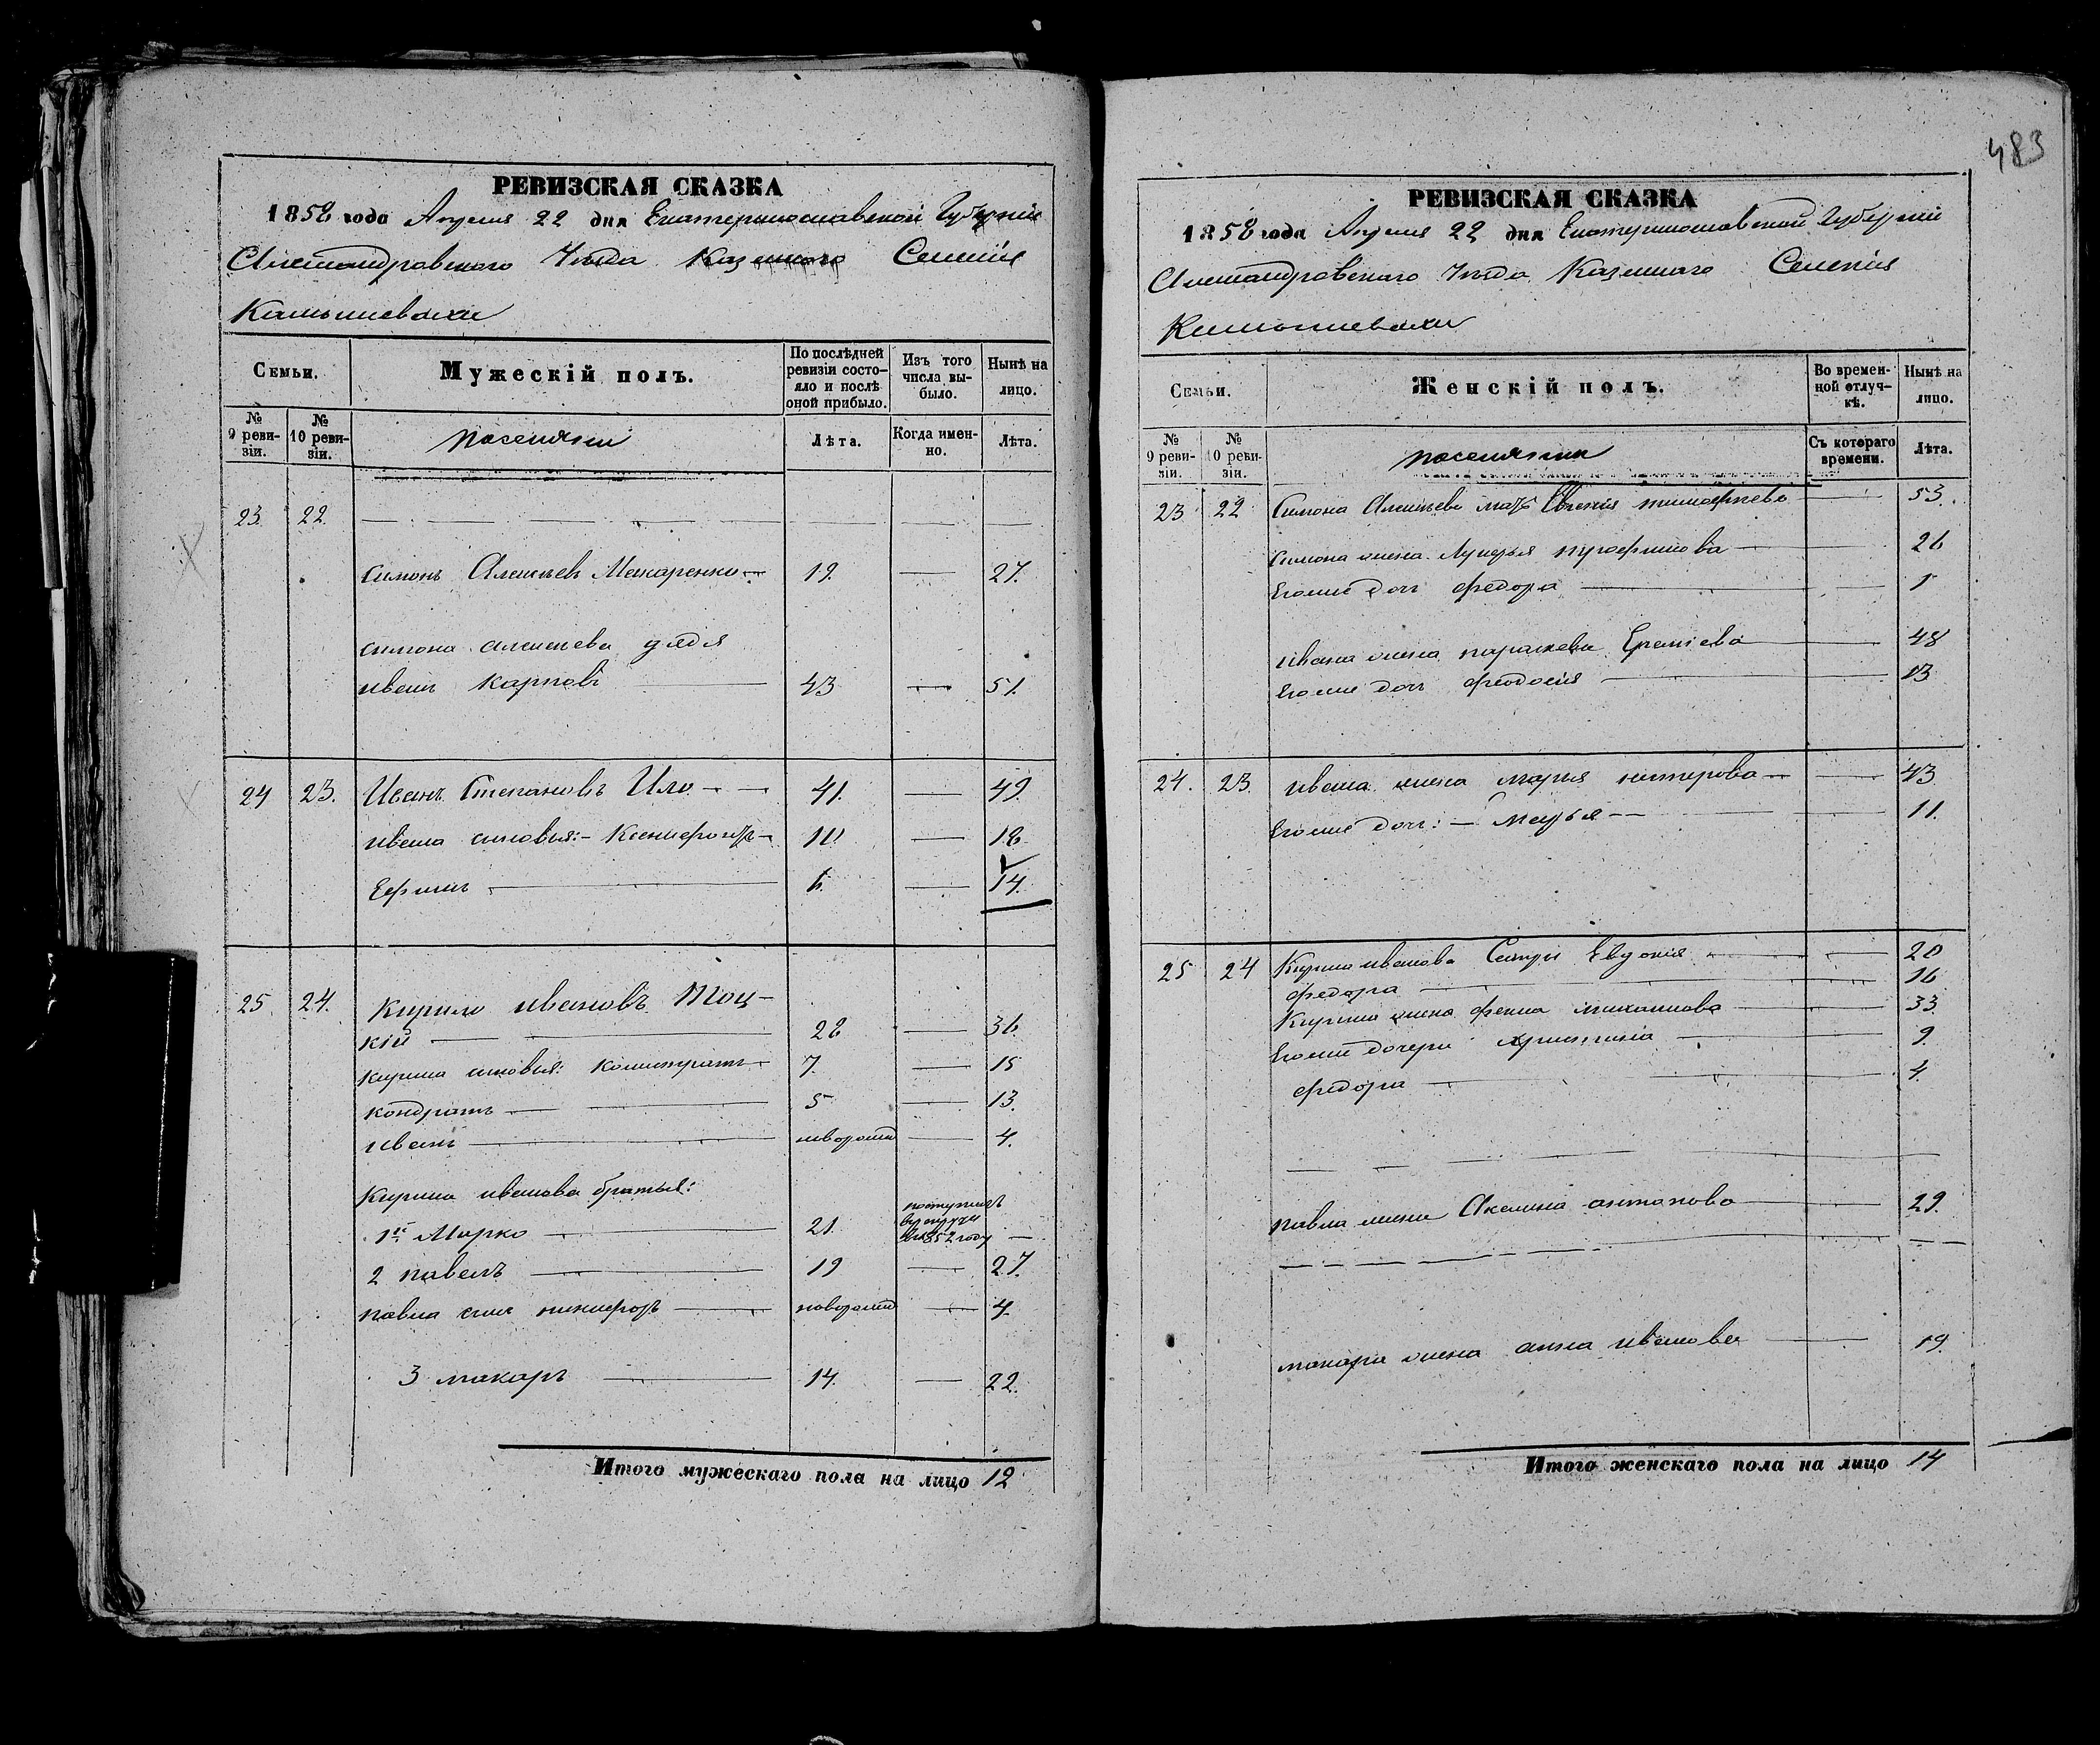 483
РЕВИЗСКАЯ СКАЗКА
1858 года Апреля 22 дня Екатеринославской Губернiи
Александровского Уезда Казенного Селенiя
Камышевахи
Семьи.
Мужескiй полъ.
По послѣдней ревизiи состояло и послѣ оной прибыло.
Изъ того числа выбыло.
Нынѣ на лицо.
№ 9 ревизiи.
№ 10 ревизiи.
поселяни
Лѣта.
Когда именно.
Лѣта.
23 22.
Симонъ Алексѣевъ Макаренко 19. 27.
Симона Алексѣева дядя
Иванъ Карповъ 43 51.
24 23. Иванъ Степановъ 41. 49.
Ивана сыновья: Ксенифонтъ 10 18
Ефимъ 6. 14.
25 24. Кирило Ивановъ Тоц-
кiй 28 36.
Кирила сыновья: Калистратъ 7. 15
Кондратъ 5 13.
Иванъ новорожд 4.
Кирила Иванова братья:
1й Марко 21. поступилъ в рекруты в 1852 году
2 Павелъ 19 27.
Павла сынъ Никифоръ новорожд 4.
3 Макаръ 14. 22.
Итого мужескаго пола на лицо 12
РЕВИЗСКАЯ СКАЗКА
1858 года Апреля 22 дня Екатеринославской Губернiи
Александровскаго Уезда Казеннаго Селенiя
Камышевахи
Семьи.
Женскiй полъ.
Во временной отлучкѣ.
Нынѣ на лицо.
№ 9 ревизiи.
№ 10 ревизiи.
поселянки
Съ котораго времени.
Лѣта.
23 22 Симона Алексѣева мать Евгенiя Тимофѣева 53.
Симона жена Лукерья Трофимова 26
Его же дочь Федора 1
Ивана жена Параскева 48
Его же дочь Феодосiя 13
24. 23. Ивана жена Марья Нестерова 43
Его же дочь: Марья 11.
25 24 Кирила Иванова Сестры Евдокiя 20
Федора 16
Кирила жена Фекла Михайлова 33
Его же дочери Христинiя 9.
Федора 4.
Павла жена Акелина Антонова 29.
Макара жена Анна Иванова 19.
Итого женскаго пола на лицо 14